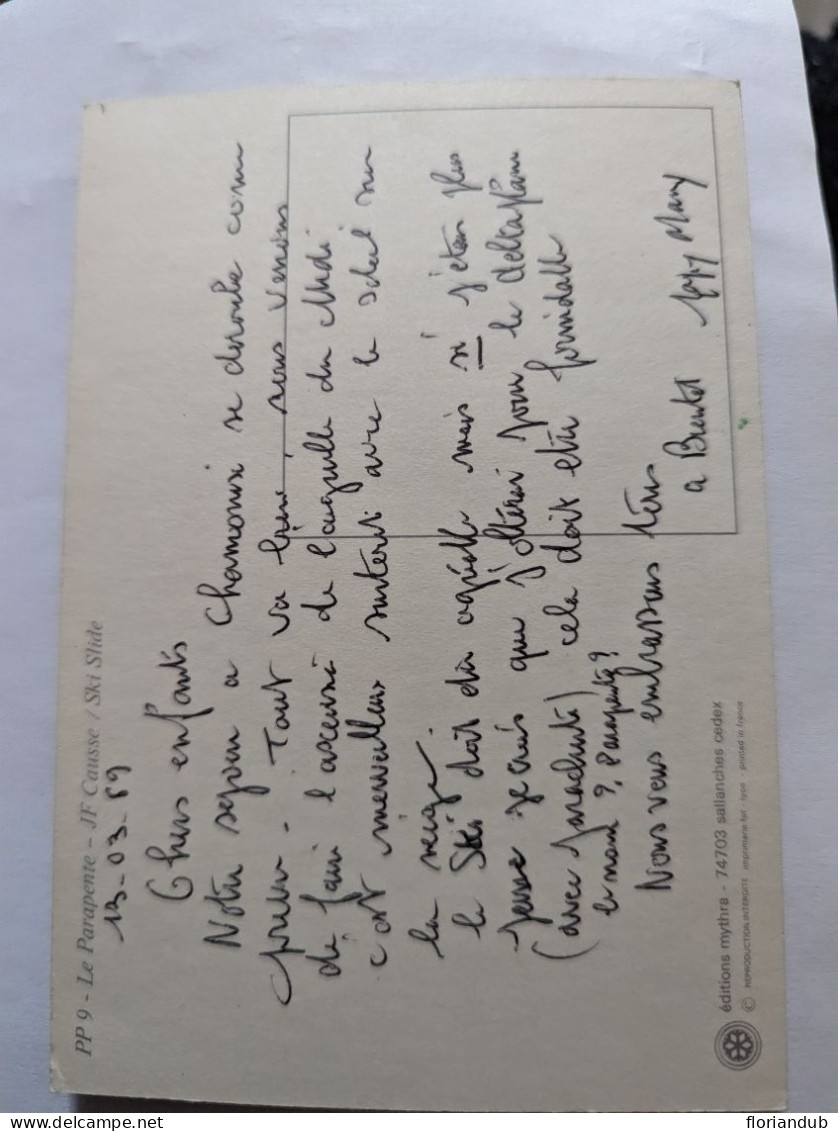 PP 9 - Le Parapente - JF Causse / Ski Slide
13-03-89
Chers enfants
Notre sejour a Chamonix se deroule comm
prevu - Tout va bien, nous venons
de faire l'ascensi de l'aiguille du Midi
c'est merveilleux surtout avec le soleil sur
la neige.
le Ski doit être agréable mais si j'étais plus
jeune je crois que j'opterai pour le deltaplane
(avec parachute) cela doit etre formidable
le nom ?, Parapente ?
Nous vous embrassons tous
a Bientot Papy Many
éditions mythra - 74703 sallanches cedex
© REPRODUCTION INTERDITE imprimerie - lyon - printed in france
floriandub